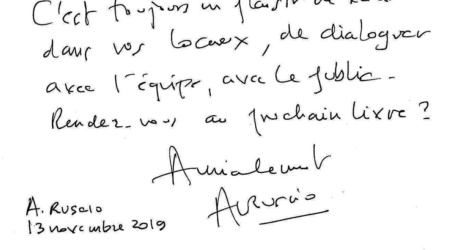 C'est toujours un plaisir de
dans vos locaux, de dialoguer
avec l'équipe, avec le public.
Rendez-vous au prochain livre ?
Amicalement
A. Ruscio
A. Ruscio
13 novembre 2019